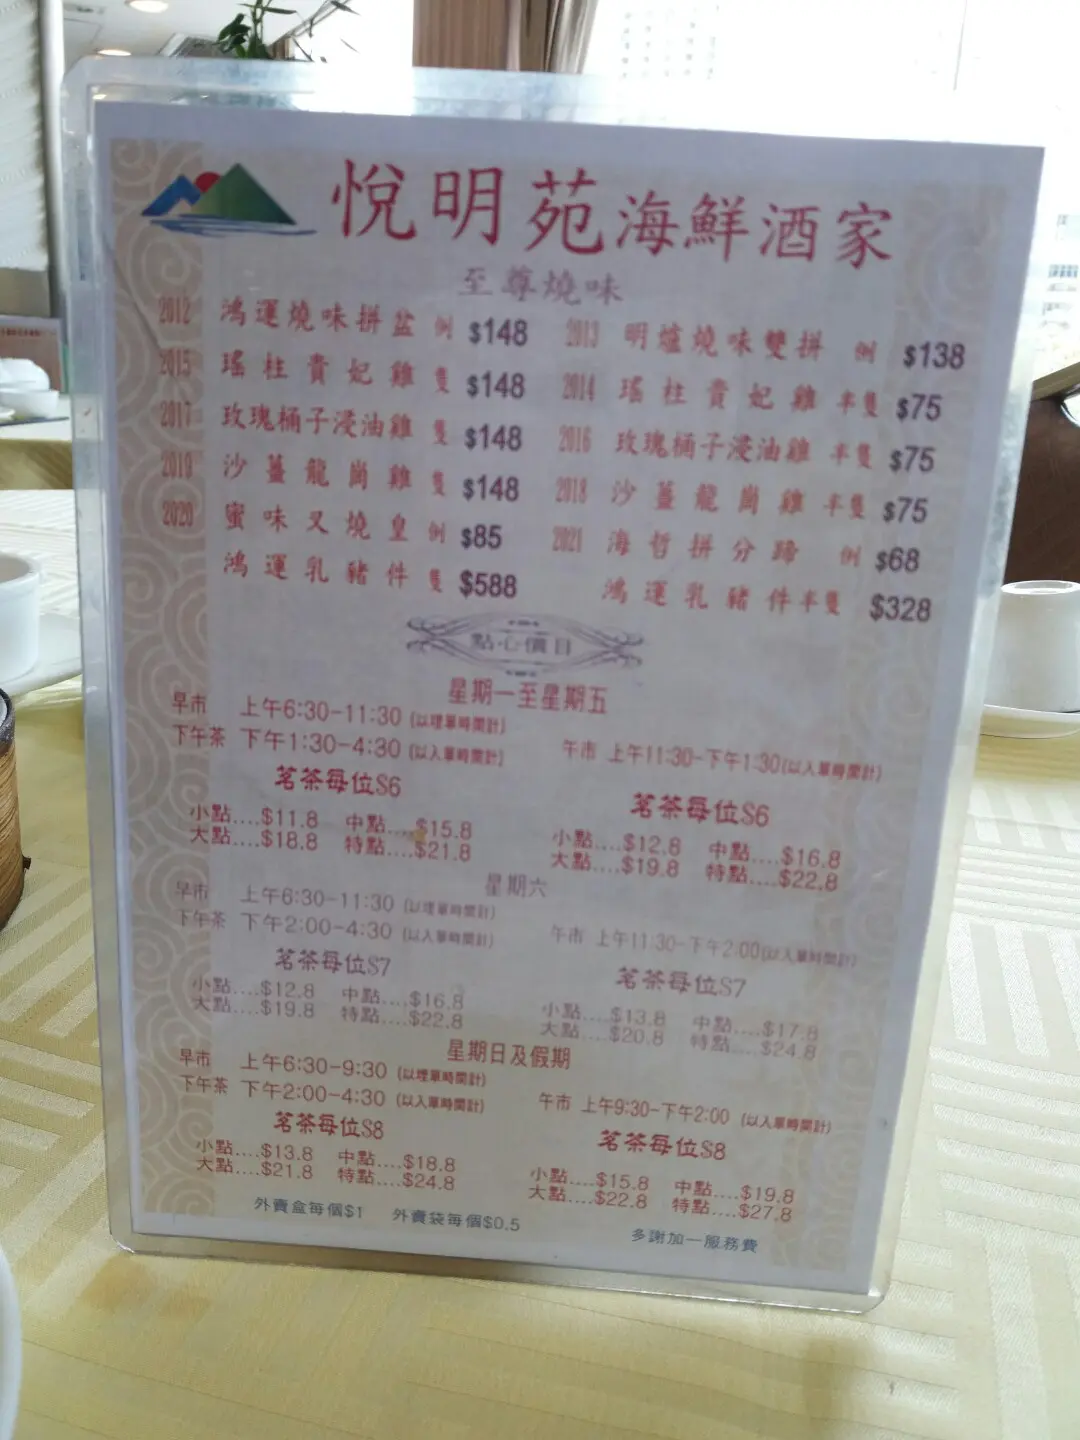 悅明苑海鮮酒家
至尊燒味
2012 鴻運燒味拼盆 例 $148 2013 明爐燒味雙拼 例 $138
2015 瑤柱貴妃雞 隻 $148 2014 瑤柱貴妃雞 半隻 $75
2017 玫瑰桶子浸油雞 隻 $148 2016 玫瑰桶子浸油雞 半隻 $75
2019 沙薑龍崗雞 隻 $148 2018 沙薑龍崗雞 半隻 $75
2020 蜜味叉燒皇 例 $85 2021 海哲拼分蹄 例 $68
鴻運乳豬件 隻 $588 鴻運乳豬件半隻 $328
點心價目
星期一至星期五
早市 上午6:30-11:30 (以埋單時間計)
下午茶 下午1:30-4:30 (以入單時間計) 午市 上午11:30-下午1:30(以入單時間計)
茗茶每位$6 茗茶每位$6
小點....$11.8 中點....$15.8 小點....$12.8 中點....$16.8
大點....$18.8 特點....$21.8 大點....$19.8 特點....$22.8
星期六
早市 上午6:30-11:30 (以埋單時間計)
下午茶 下午2:00-4:30 (以入單時間計) 午市 上午11:30-下午2:00(以入單時間計)
茗茶每位$7 茗茶每位$7
小點....$12.8 中點....$16.8 小點....$13.8 中點....$17.8
大點....$19.8 特點....$22.8 大點....$20.8 特點....$24.8
星期日及假期
早市 上午6:30-9:30 (以埋單時間計)
下午茶 下午2:00-4:30 (以入單時間計) 午市 上午9:30-下午2:00 (以入單時間計)
茗茶每位$8 茗茶每位$8
小點....$13.8 中點....$18.8 小點....$15.8 中點....$19.8
大點....$21.8 特點....$24.8 大點....$22.8 特點....$27.8
外賣盒每個$1 外賣袋每個$0.5 多謝加一服務費